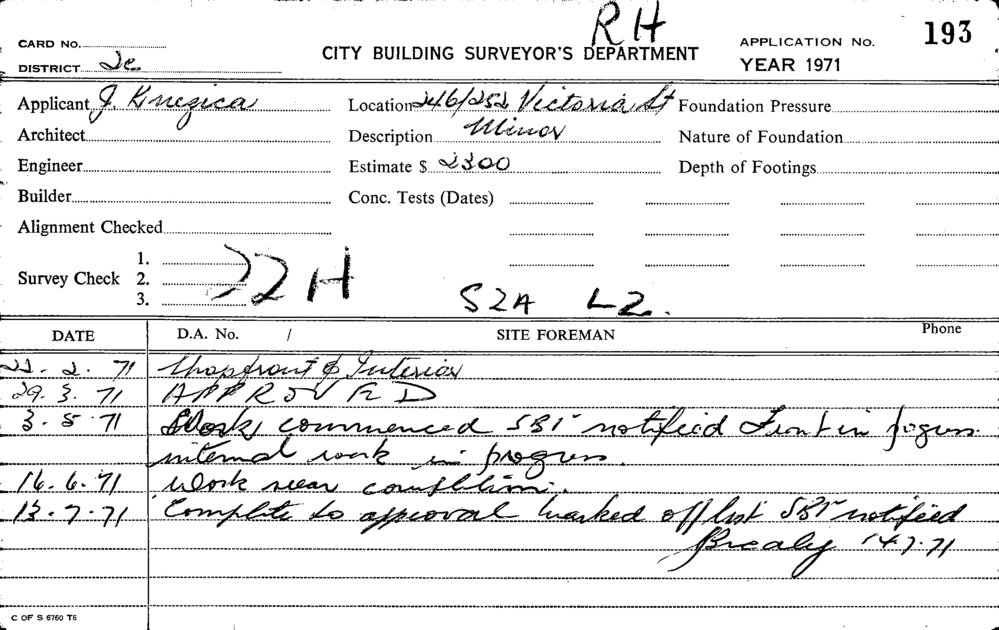 RH
193
CARD NO.
CITY BUILDING SURVEYOR'S DEPARTMENT
APPLICATION No.
DISTRICT 2c
YEAR 1971
Applicant J. Knezica Location 246/252 Victoria St Foundation Pressure
Architect Description Minor Nature of Foundation
Engineer Estimate $ 2300 Depth of Footings
Builder Conc. Tests (Dates)
Alignment Checked
Survey Check 1.
2.
3.
22H
S2A L2.
DATE D.A. No. / SITE FOREMAN Phone
22. 2. 71 Shopfront & Interior
29. 3. 71 APPROVED
3. 5. 71 Work commenced SBI notified Front in progress
internal work in progress.
16. 6. 71 Work near completion.
13. 7. 71 Complete to approval marked off list SBI notified
Brealy 14.7.71
C OF S 6760 T6